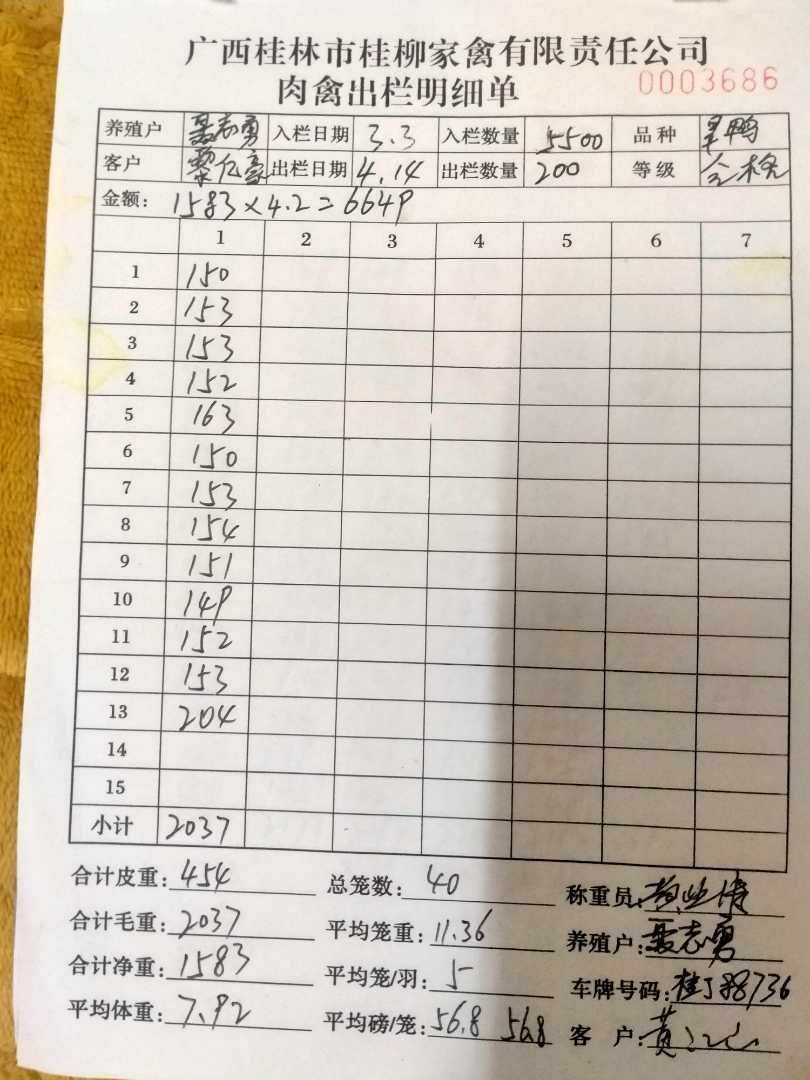 广西桂林市桂柳家禽有限责任公司
肉禽出栏明细单 0003686
养殖户 聂志勇 入栏日期 3.3 入栏数量 5500 品种 鸭
客户 黎亿豪 出栏日期 4.14 出栏数量 200 等级 合格
金额: 1583×4.2=6649
1 2 3 4 5 6 7
1 150
2 153
3 153
4 152
5 163
6 150
7 153
8 154
9 151
10 149
11 152
12 153
13 204
14
15
小计 2037
合计皮重: 454 总笼数: 40 称重员:
合计毛重: 2037 平均笼重: 11.36 养殖户: 聂志勇
合计净重: 1583 平均笼/羽: 5 车牌号码: 桂J88736
平均体重: 7.92 平均磅/笼: 56.8 56.8 客户: 黄